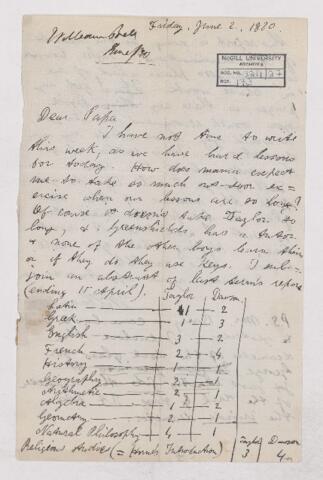 Friday, June 2, 1870.
William
June 1870
McGILL UNIVERSITY
ARCHIVES
ACC. NO.
REF.
Dear Papa
I have not time to write
this week, as we have hard lessons
for today. How does mama expect
me to take as much out-door ex-
ercise when our lessons are so long?
Of course it doesn't take Taylor so
long, & Greenshields, has a tutor
& none of the other boys learn their
or if they do they use keys. I sub-
join an abstract of last term's report
(ending 15 April).
Taylor Dawson
Latin 1 2
Greek 1 3
English 3 2
French 2 4
History 1
Geography 2 1
Arithmetic 2
Algebra 1 2
Geometry 2 1
Natural Philosophy 4
Religious Studies (= Introduction) Taylor 3 Dawson 4